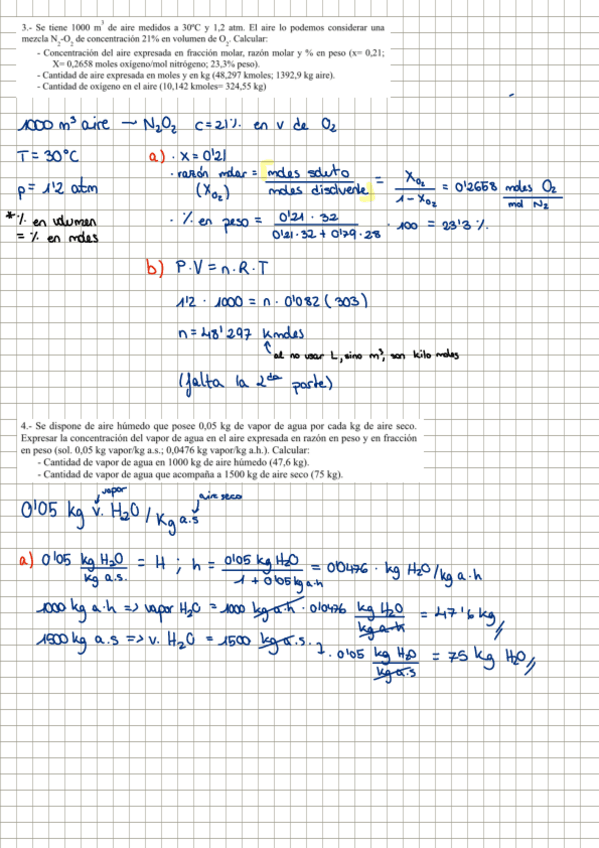 3.- Se tiene 1000 m³ de aire medidos a 30ºC y 1,2 atm. El aire lo podemos considerar una
mezcla N₂-O₂ de concentración 21% en volumen de O₂. Calcular:
- Concentración del aire expresada en fracción molar, razón molar y % en peso (x= 0,21;
X= 0,2658 moles oxígeno/mol nitrógeno; 23,3% peso).
- Cantidad de aire expresada en moles y en kg (48,297 kmoles; 1392,9 kg aire).
- Cantidad de oxígeno en el aire (10,142 kmoles= 324,55 kg)
1000 m³ aire — N₂O₂ c=21% en v de O₂
T = 30°C
a) · x = 0'21
· razón molar = moles soluto / moles disolvente = X O₂ / 1 - X O₂ = 0'2658 moles O₂ / mol N₂
(X O₂)
p = 1'2 atm
* % en volumen
= % en moles
· % en peso = 0'21 · 32 / 0'21 · 32 + 0'79 · 28 · 100 = 23'3 %.
b) P·V = n·R·T
1'2 · 1000 = n · 0'082 (303)
n = 48'297 Kmoles
al no usar L, sino m³, son kilo moles
(falta la 2da parte)
4.- Se dispone de aire húmedo que posee 0,05 kg de vapor de agua por cada kg de aire seco.
Expresar la concentración del vapor de agua en el aire expresada en razón en peso y en fracción
en peso (sol. 0,05 kg vapor/kg a.s.; 0,0476 kg vapor/kg a.h.). Calcular:
- Cantidad de vapor de agua en 1000 kg de aire húmedo (47,6 kg).
- Cantidad de vapor de agua que acompaña a 1500 kg de aire seco (75 kg).
vapor aire seco
0'05 kg v. H₂O / Kg a.s
a) 0'05 kg H₂O / kg a.s. = H ; h = 0'05 kg H₂O / 1 + 0'05 kg a.h = 0'0476 · kg H₂O/kg a.h
1000 kg a.h => vapor H₂O = 1000 kg a.h · 0'0476 kg H₂O / kg a.h = 47'6 kg //
1500 kg a.s => v. H₂O = 1500 kg a.s. · 0'05 kg H₂O / kg a.s = 75 kg H₂O //